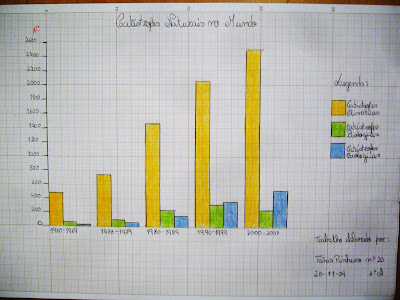 Catástrofes Naturais no Mundo
Nº
2600
2400
2200
2000
1800
1600
1400
1200
1000
800
600
400
200
0
1960-1969
1970-1979
1980-1989
1990-1999
2000-2007
Legenda:
Catástrofes
Climáticas
Catástrofes
Geológicas
Catástrofes
Biológicas
Trabalho elaborado por:
Tânia Monteiro nº 20
20-11-09